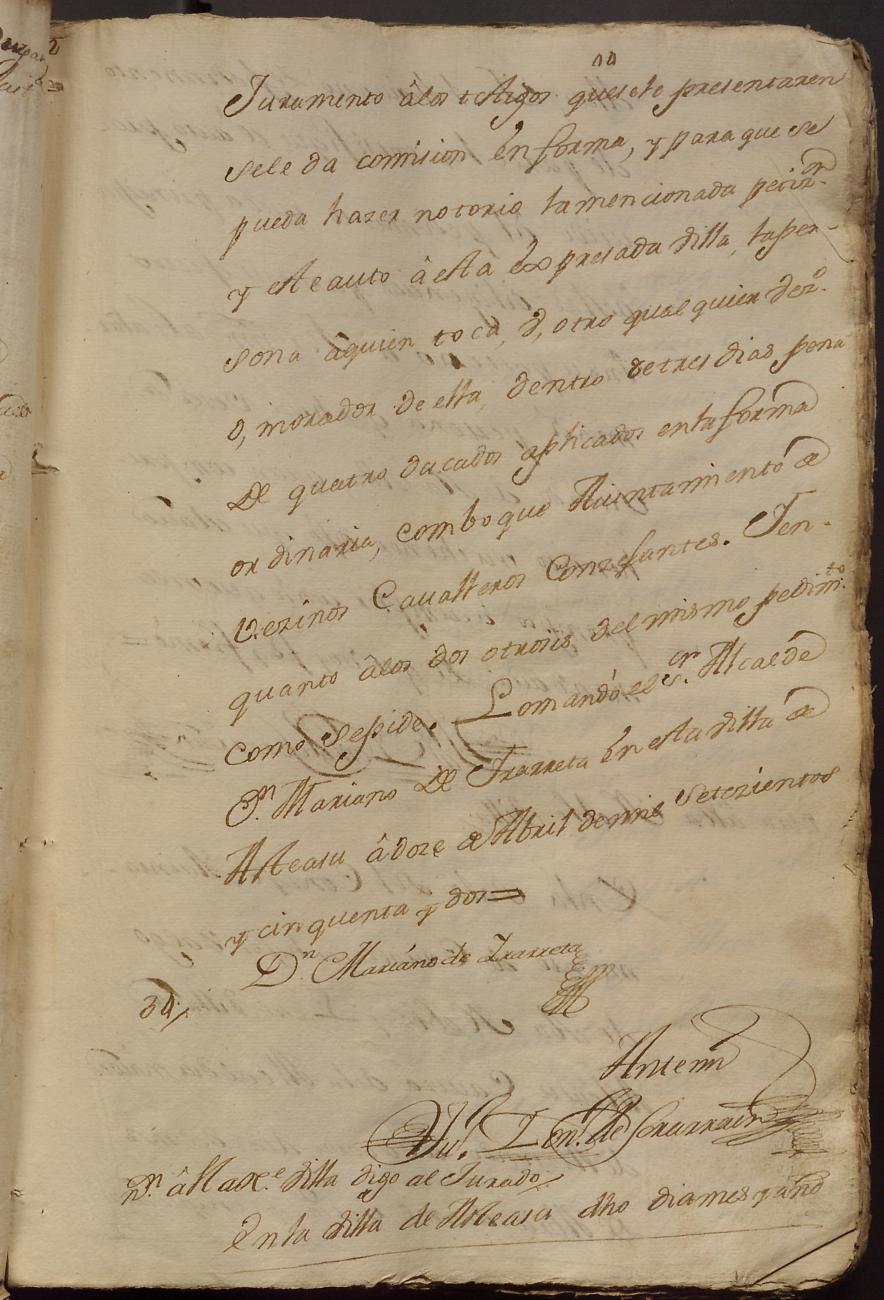 Juramento â los testigos que sele presentaren
sele da comision en forma, y para que se
pueda hazer notorio la mencionada petizon
y este auto â esta expresada Villa, la per-
sona âquien toca, ô, otro qualquier vezo.
ô, morador de ella, dentro de tres dias pena
de quatro ducados aplicados en la forma
ordinaria, comboque Aiuntamiento de
Vezinos Cavalleros Conzesantes. Y en
quanto âlos dos otrosis del mismo pedimto.
como se pide. Lo mandó el Sr. Alcalde
Dn. Mariano de Yrarreta en esta Villa de
Asteasu â doze de Abril de mil setezientos
y cinquenta y dos =
Dn. Mariano de Yrarreta
34/
Antemi
en la Villa de Asteasu dho dia mes y año